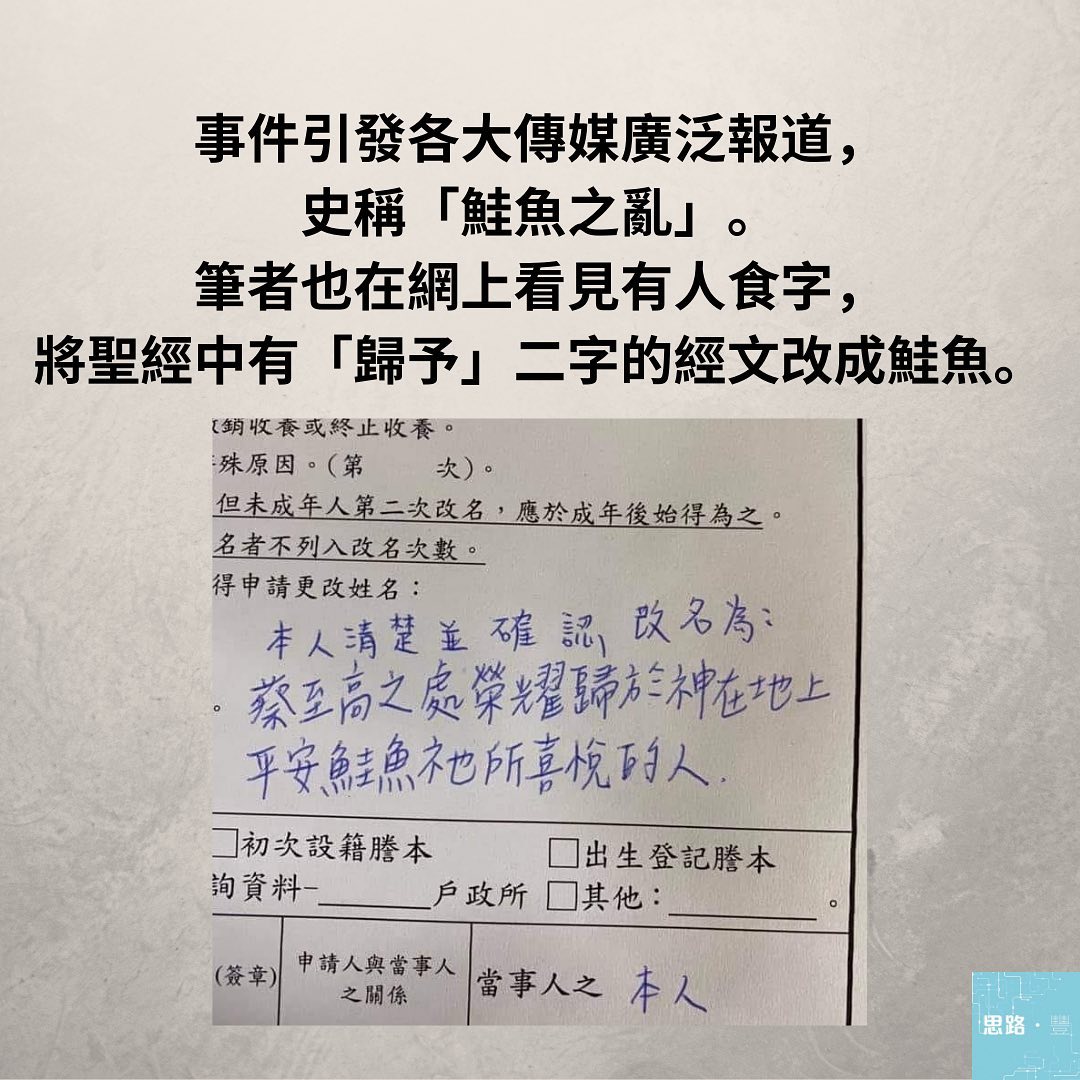 事件引發各大傳媒廣泛報道，
史稱「鮭魚之亂」。
筆者也在網上看見有人食字，
將聖經中有「歸予」二字的經文改成鮭魚。
銷收養或終止收養。
殊原因。(第 次)。
但未成年人第二次改名，應於成年後始得為之。
名者不列入改名次數。
得申請更改姓名：
本人清楚並確認改名為:
。蔡至高之處榮耀歸於神在地上
平安鮭魚祂所喜悅的人.
□初次設籍謄本 □出生登記謄本
詢資料-______戶政所 □其他：________。
(簽章) 申請人與當事人之關係 當事人之 本人
思路·豐